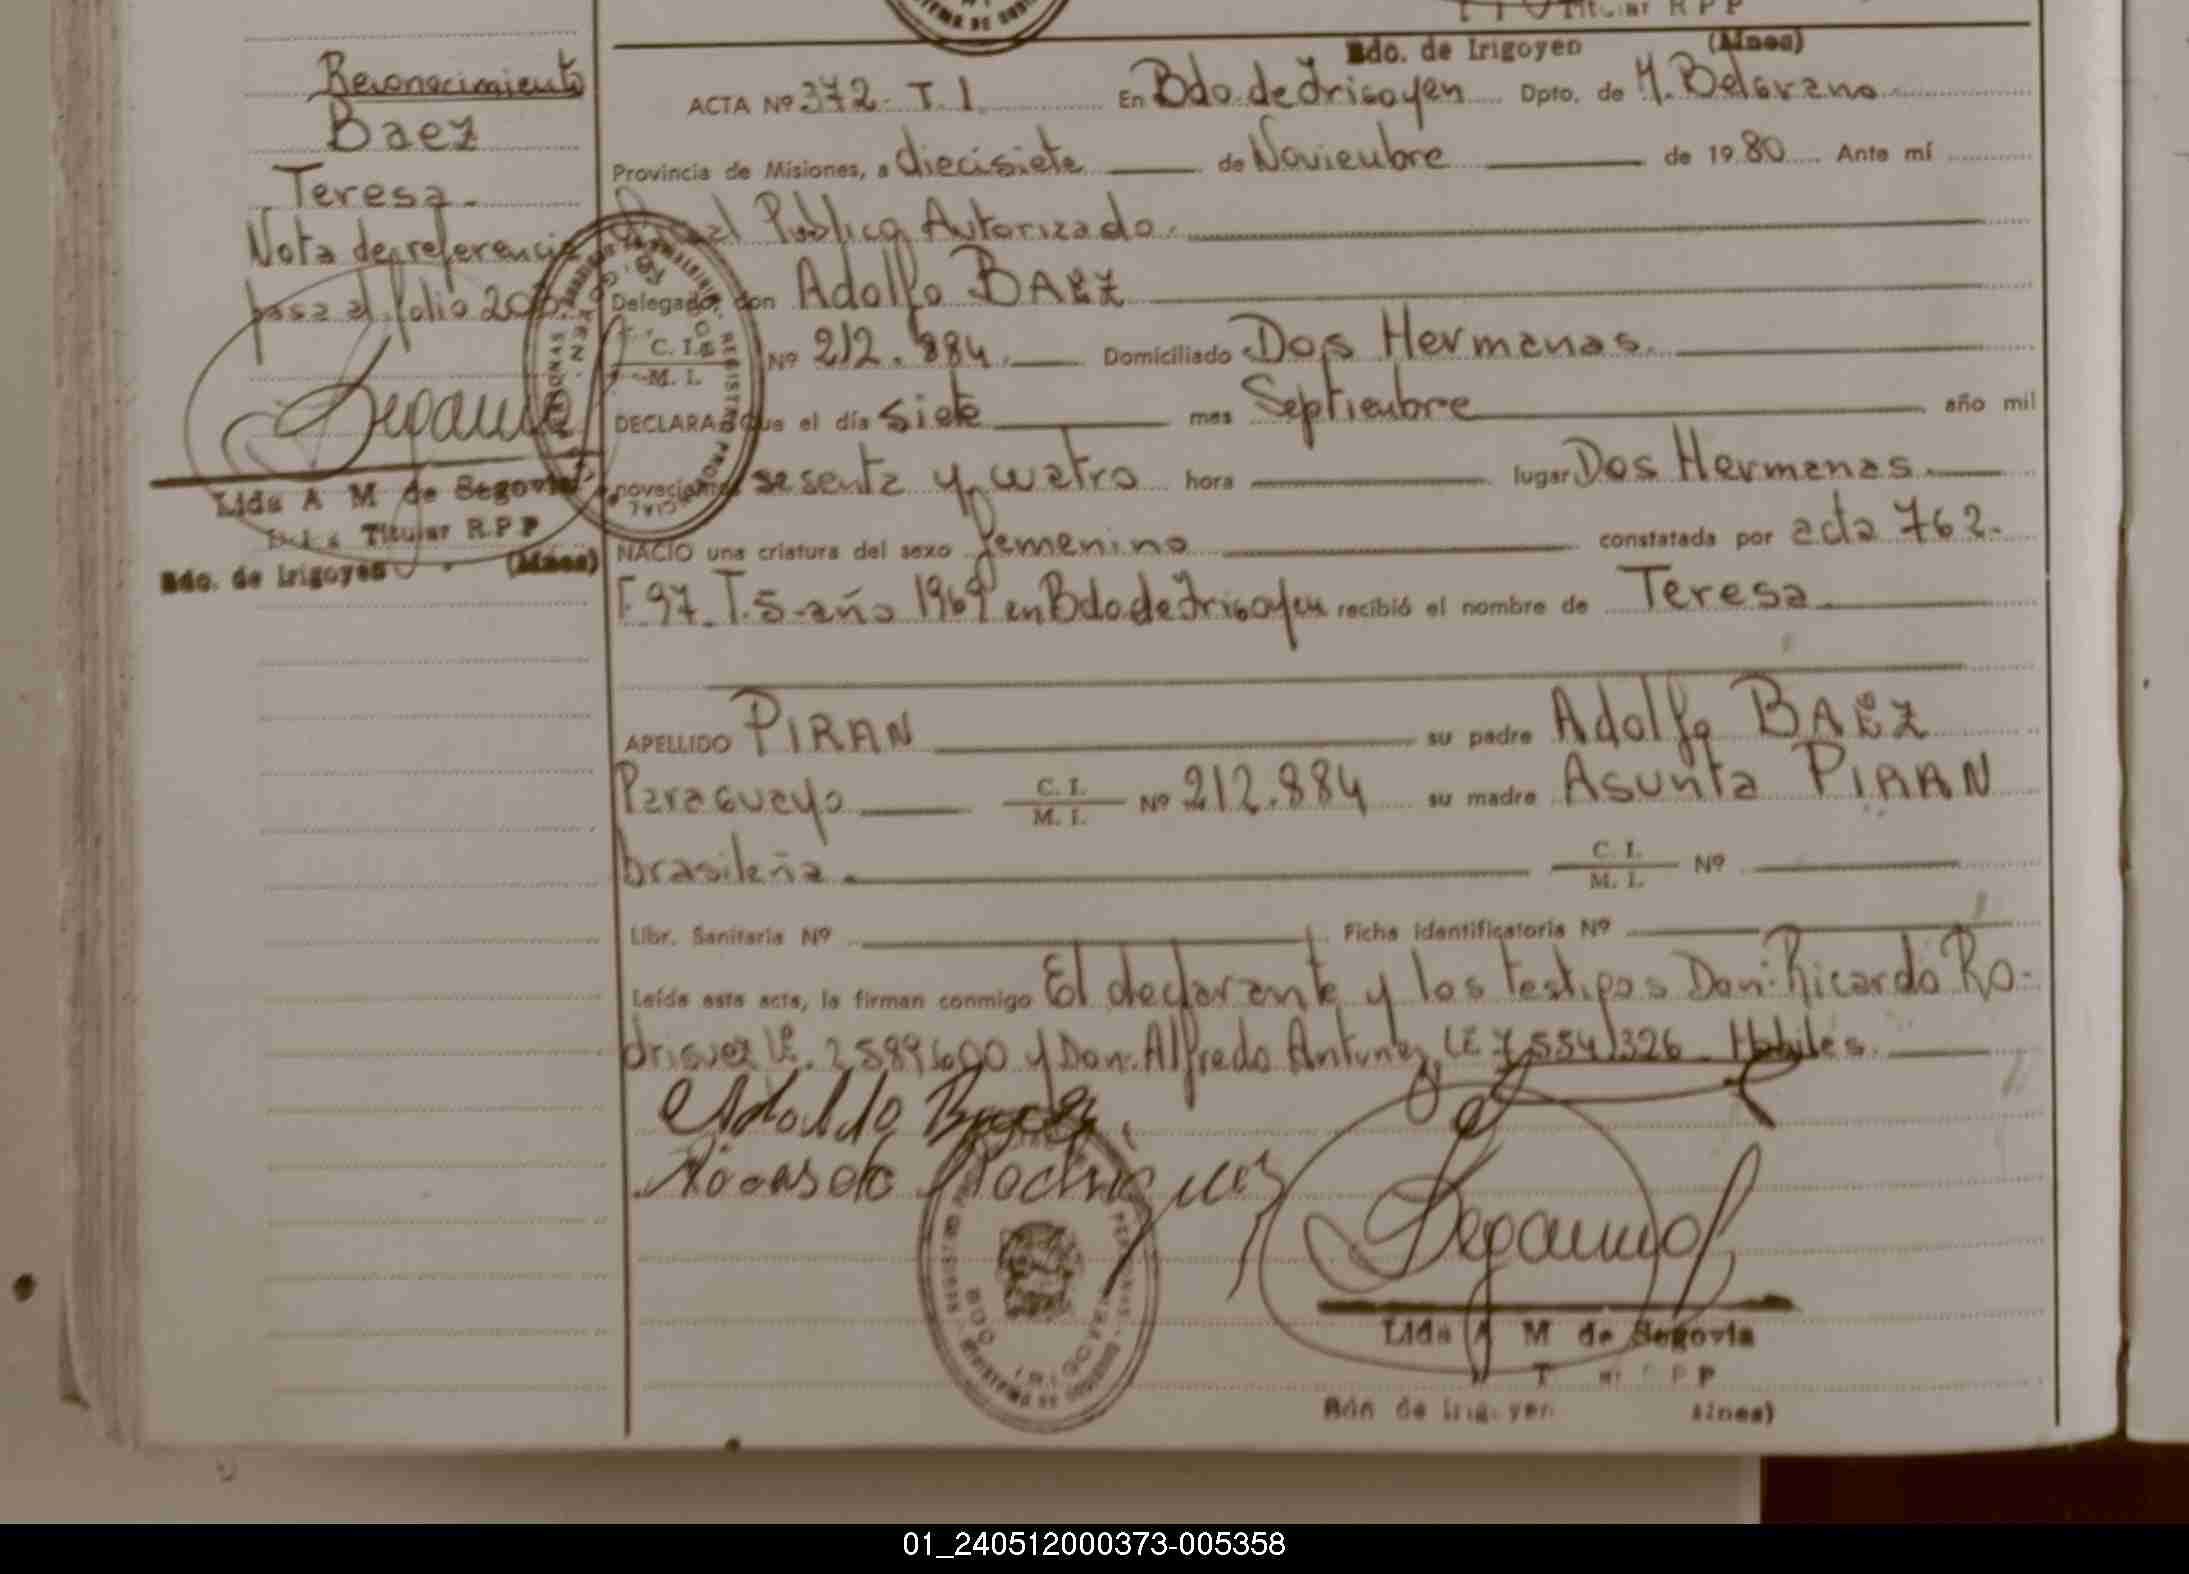 Titular R P P
Bdo. de Irigoyen (Mnes)
Reconocimiento
Baez
Teresa.
Nota de referencia
pasa al folio
Lida A M de Segovia
Titular R.P.P
Bdo. de Irigoyen (Mnes)
ACTA Nº 372. T. I. En Bdo. de Irigoyen Dpto. de M. Belgrano
Provincia de Misiones, a diecisiete de Noviembre de 1980 Ante mí
Pública Autorizado.
Delegado, don Adolfo BAEZ
C. I. / M. I. Nº 212.884. Domiciliado Dos Hermanas.
DECLARA: Que el día siete mes Septiembre año mil
novecientos sesenta y cuatro hora lugar Dos Hermanas.
NACIO una criatura del sexo femenino constatada por acta 762.
F. 97. T. 5 año 1969 en Bdo de Irigoyen recibió el nombre de Teresa
APELLIDO PIRAN su padre Adolfo BAEZ
Paraguayo C. I. / M. I. Nº 212.884 su madre Asunta PIRAN
brasileña. C. I. / M. I. Nº
Libr. Sanitaria Nº Ficha Identificatoria Nº
Leída esta acta, la firman conmigo El declarante y los testigos Don: Ricardo Ro-
driguez y Don: Alfredo Antunez LE 7554326 Habiles.
Adolfo Baez
Ricardo Rodriguez
Lida A M de Segovia
P P
Bdo de Irigoyen Mnes)
01_240512000373-005358